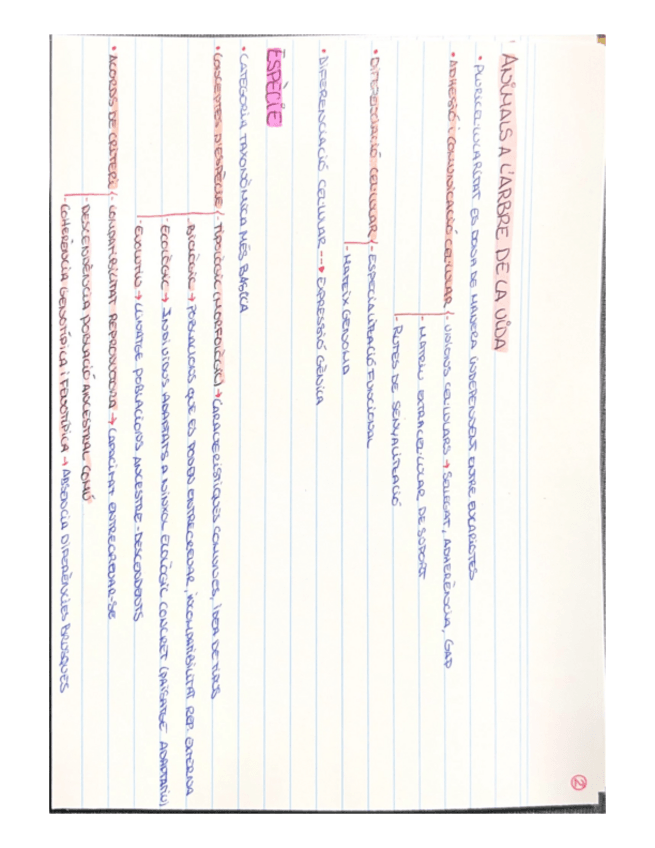 ②
ANIMALS A L'ARBRE DE LA VIDA
• PLURICEL·LULARITAT ES DONA DE MANERA INDEPENDENT ENTRE EUCARIOTES
• ADHESIÓ i COMUNICACIÓ CEL·LULAR - UNIONS CEL·LULARS → SEGELLAT, ADHERÈNCIA, GAP
- MATRIU EXTRACEL·LULAR DE SUPORT
- RUTES DE SENYALITZACIÓ
• DIFERENCIACIÓ CEL·LULAR - ESPECIALITZACIÓ FUNCIONAL
- MATEIX GENOMA
• DIFERENCIACIÓ CEL·LULAR ---→ EXPRESSIÓ GÈNICA
ESPÈCIE
• CATEGORIA TAXONÒMICA MÉS BÀSICA
• CONCEPTES D'ESPÈCIE - TIPOLÒGIC (MORFOLÒGIC) → CARACTERÍSTIQUES COMUNES, IDEA DE TIPUS
- BIOLÒGIC → POBLACIONS QUE ES PODEN ENTRECREUAR, INCOMPATIBILITAT REP. EXTERNA
- ECOLÒGIC → INDIVIDUS ADAPTATS A NÍNXOL ECOLÒGIC CONCRET (PAISATGE ADAPTATIU)
- EVOLUTIU → LLINATGE POBLACIONS ANCESTRE-DESCENDENTS
• ACORDS DE CRITERI - COMPATIBILITAT REPRODUCTORA → CAPACITAT ENTRECREUAR-SE
- DESCENDÈNCIA POBLACIÓ ANCESTRAL COMÚ
- COHERÈNCIA GENOTÍPICA i FENOTÍPICA → ABSÈNCIA DIFERÈNCIES BRUSQUES